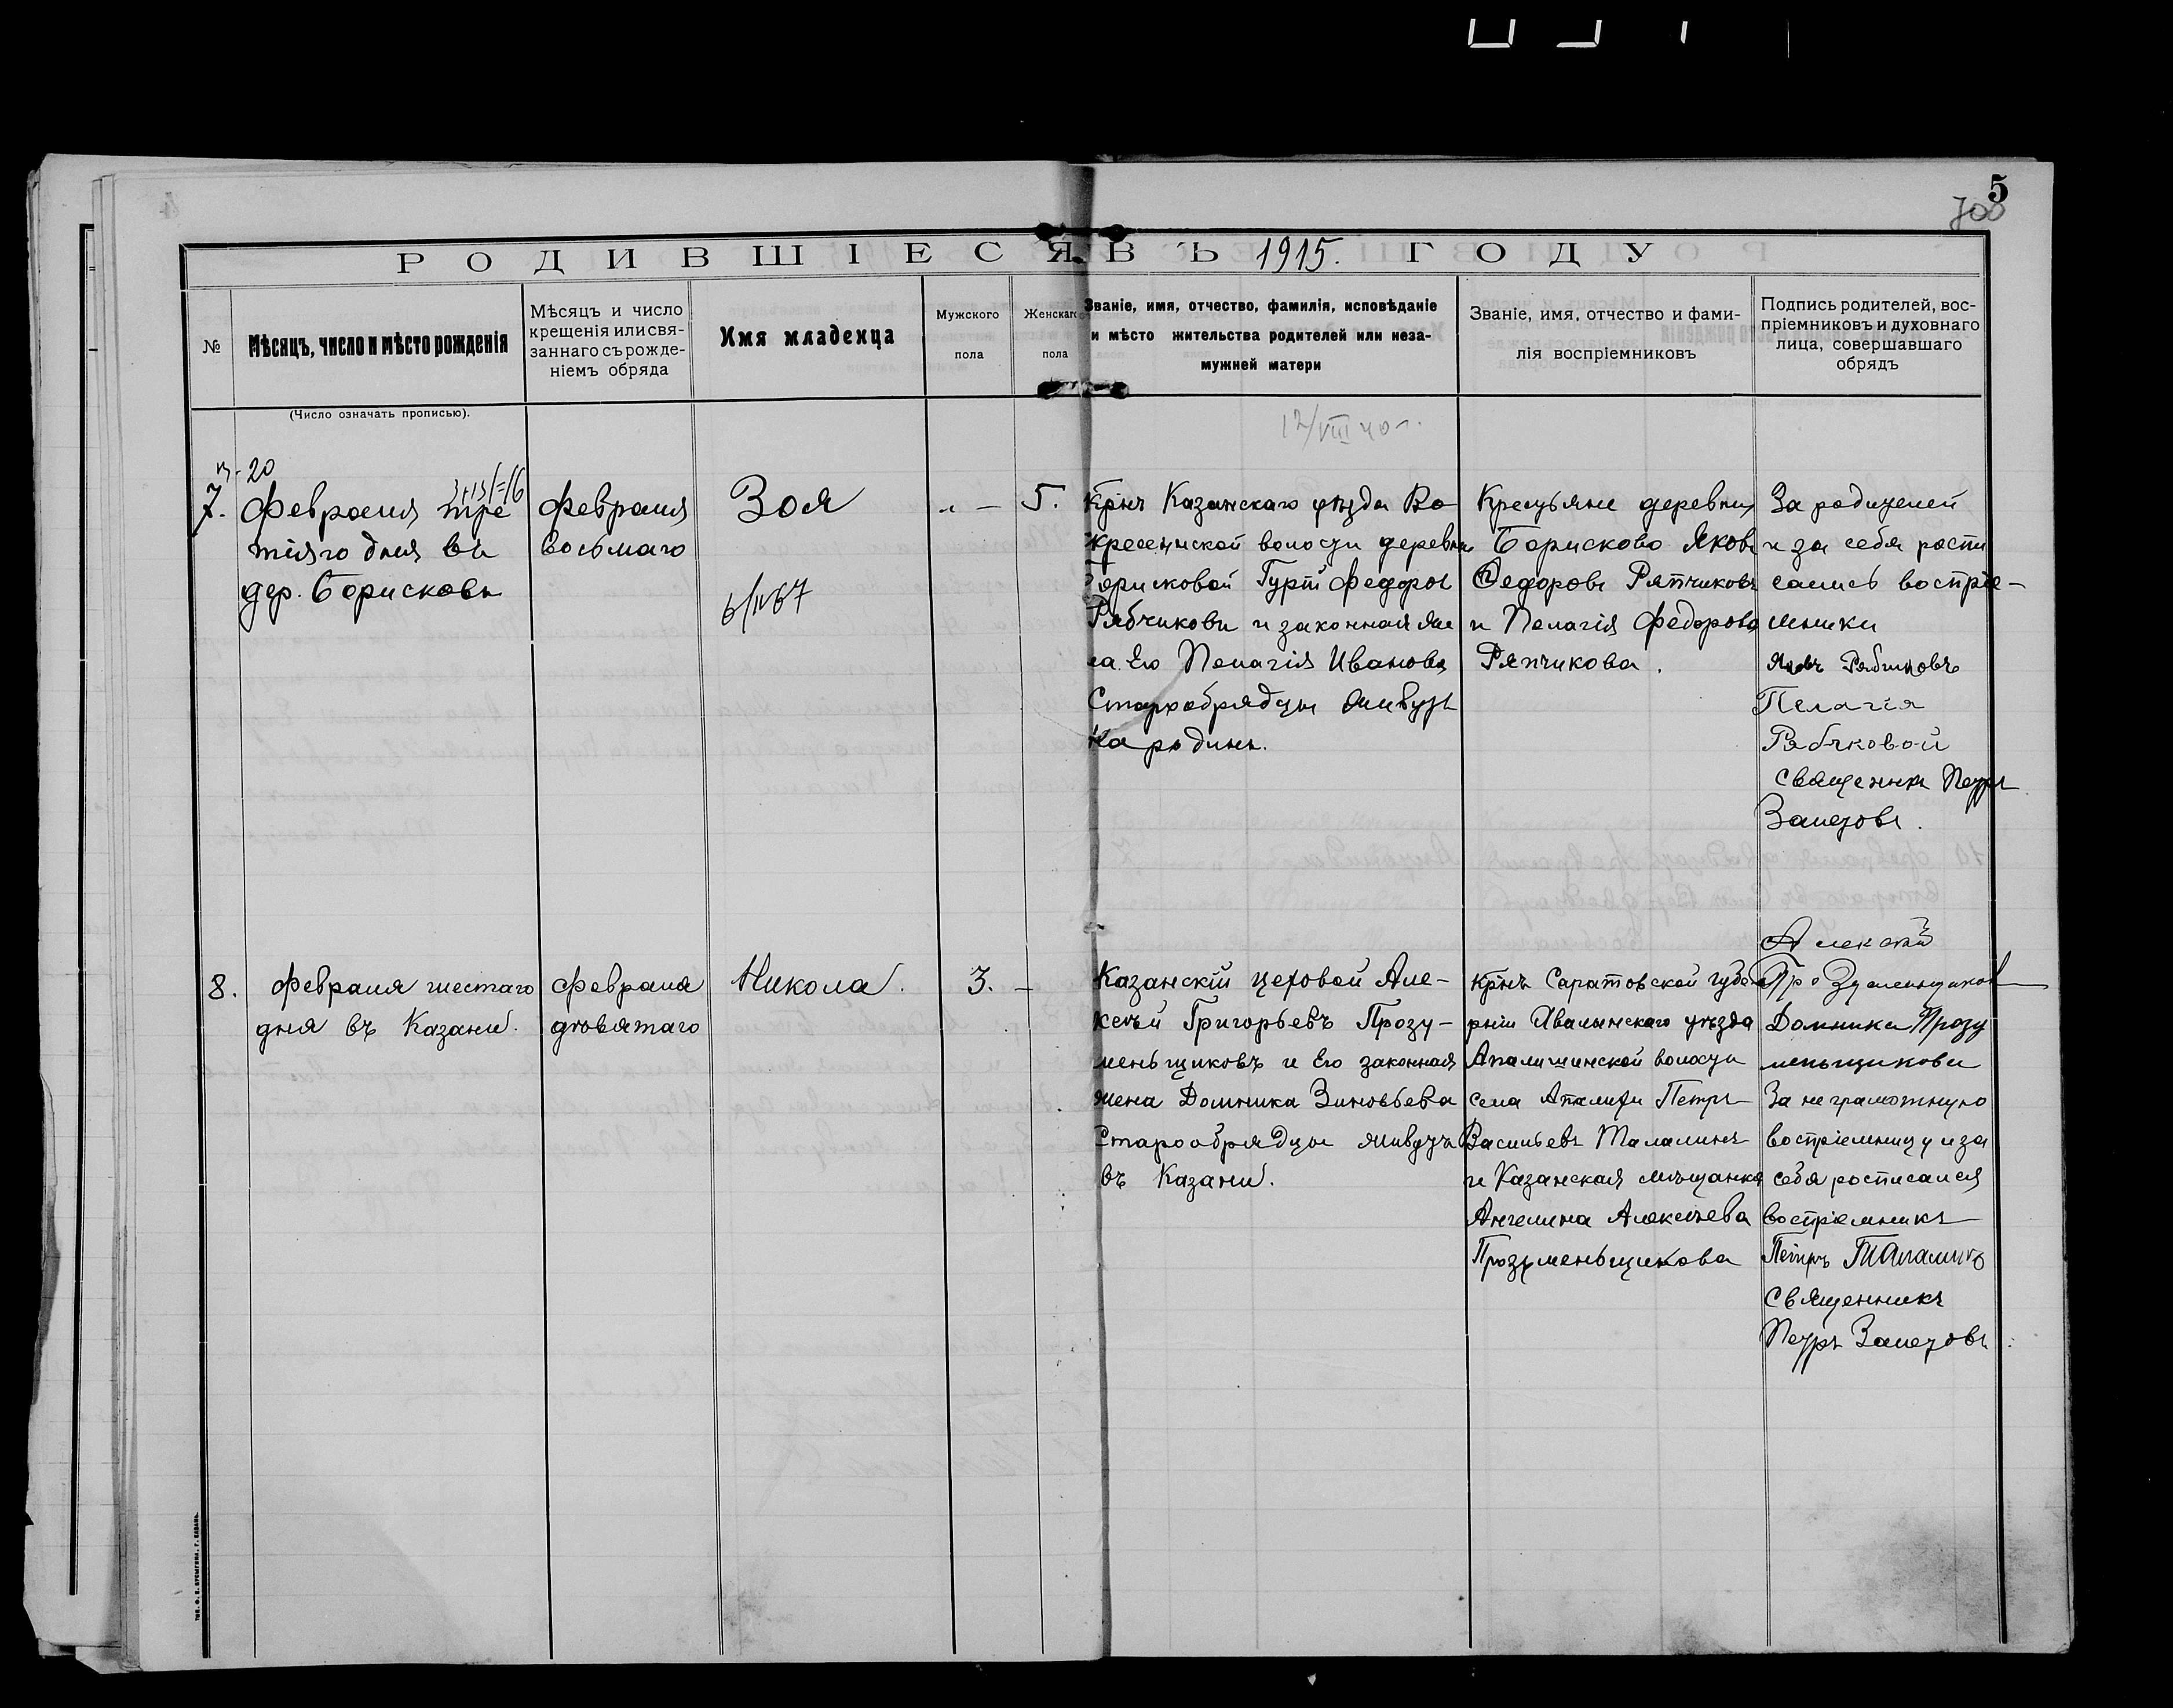 5
700
РОДИВШІЕСЯ ВЪ 1915. ГОДУ
№
Мѣсяцъ, число и мѣсто рожденія
Мѣсяцъ и число
крещенія или свя-
заннаго съ рожде-
ніемъ обряда
Имя младенца
Мужского
пола
Женскаго
пола
Званіе, имя, отчество, фамилія, исповѣданіе
и мѣсто жительства родителей или неза-
мужней матери
Званіе, имя, отчество и фами-
лія воспріемниковъ
Подпись родителей, вос-
пріемниковъ и духовнаго
лица, совершавшаго
обрядъ
(Число означать прописью).
12/VIII 40 г.
20
3+13=16
7.
Февраля тре
тіяго дня въ
дер. Борисковѣ
Февраля
восьмаго
Зоя
6/II 67
" —
5.
Крнъ Казанскаго уѣзда Во
кресенской волости деревни
Борисковой Гурій Федоровъ
Рябчиковъ и законная же
на Его Пелагія Иванова
Старообрядцы живутъ
на родинѣ.
Крестьяне деревни
Борисково Яковъ
Федоровъ Ряпчиковъ
и Пелагія Федорова
Ряпчикова.
За родителей
и за себя роспи
сались воспріе-
мники
Яковъ Рябчиковъ
Пелагія
Рябчковой
Священникъ Петръ
Залетовъ.
8.
Февраля шестаго
дня въ Казани.
Февраля
девятаго
Никола.
3. —
Казанскій цеховой Але-
ксѣй Григорьевъ Прозу-
меньщиковъ и Его законная
жена Домника Зиновьева
Старообрядцы живутъ
въ Казани.
Крнъ Саратовской губе
рніи Хвалынскаго уѣзда
Апалишинской волости
села Апалихи Петръ
Васильевъ Талалинъ
и Казанская мѣщанка
Ангелина Алексѣева
Прозуменьщикова
Алексѣй
Прозуменьщиковъ
Домника Прозу
меньщикова
За неграмотную
воспріемницу и за
себя росписался
воспріемникъ
Петръ Талалинъ
Священникъ
Петръ Залетовъ.